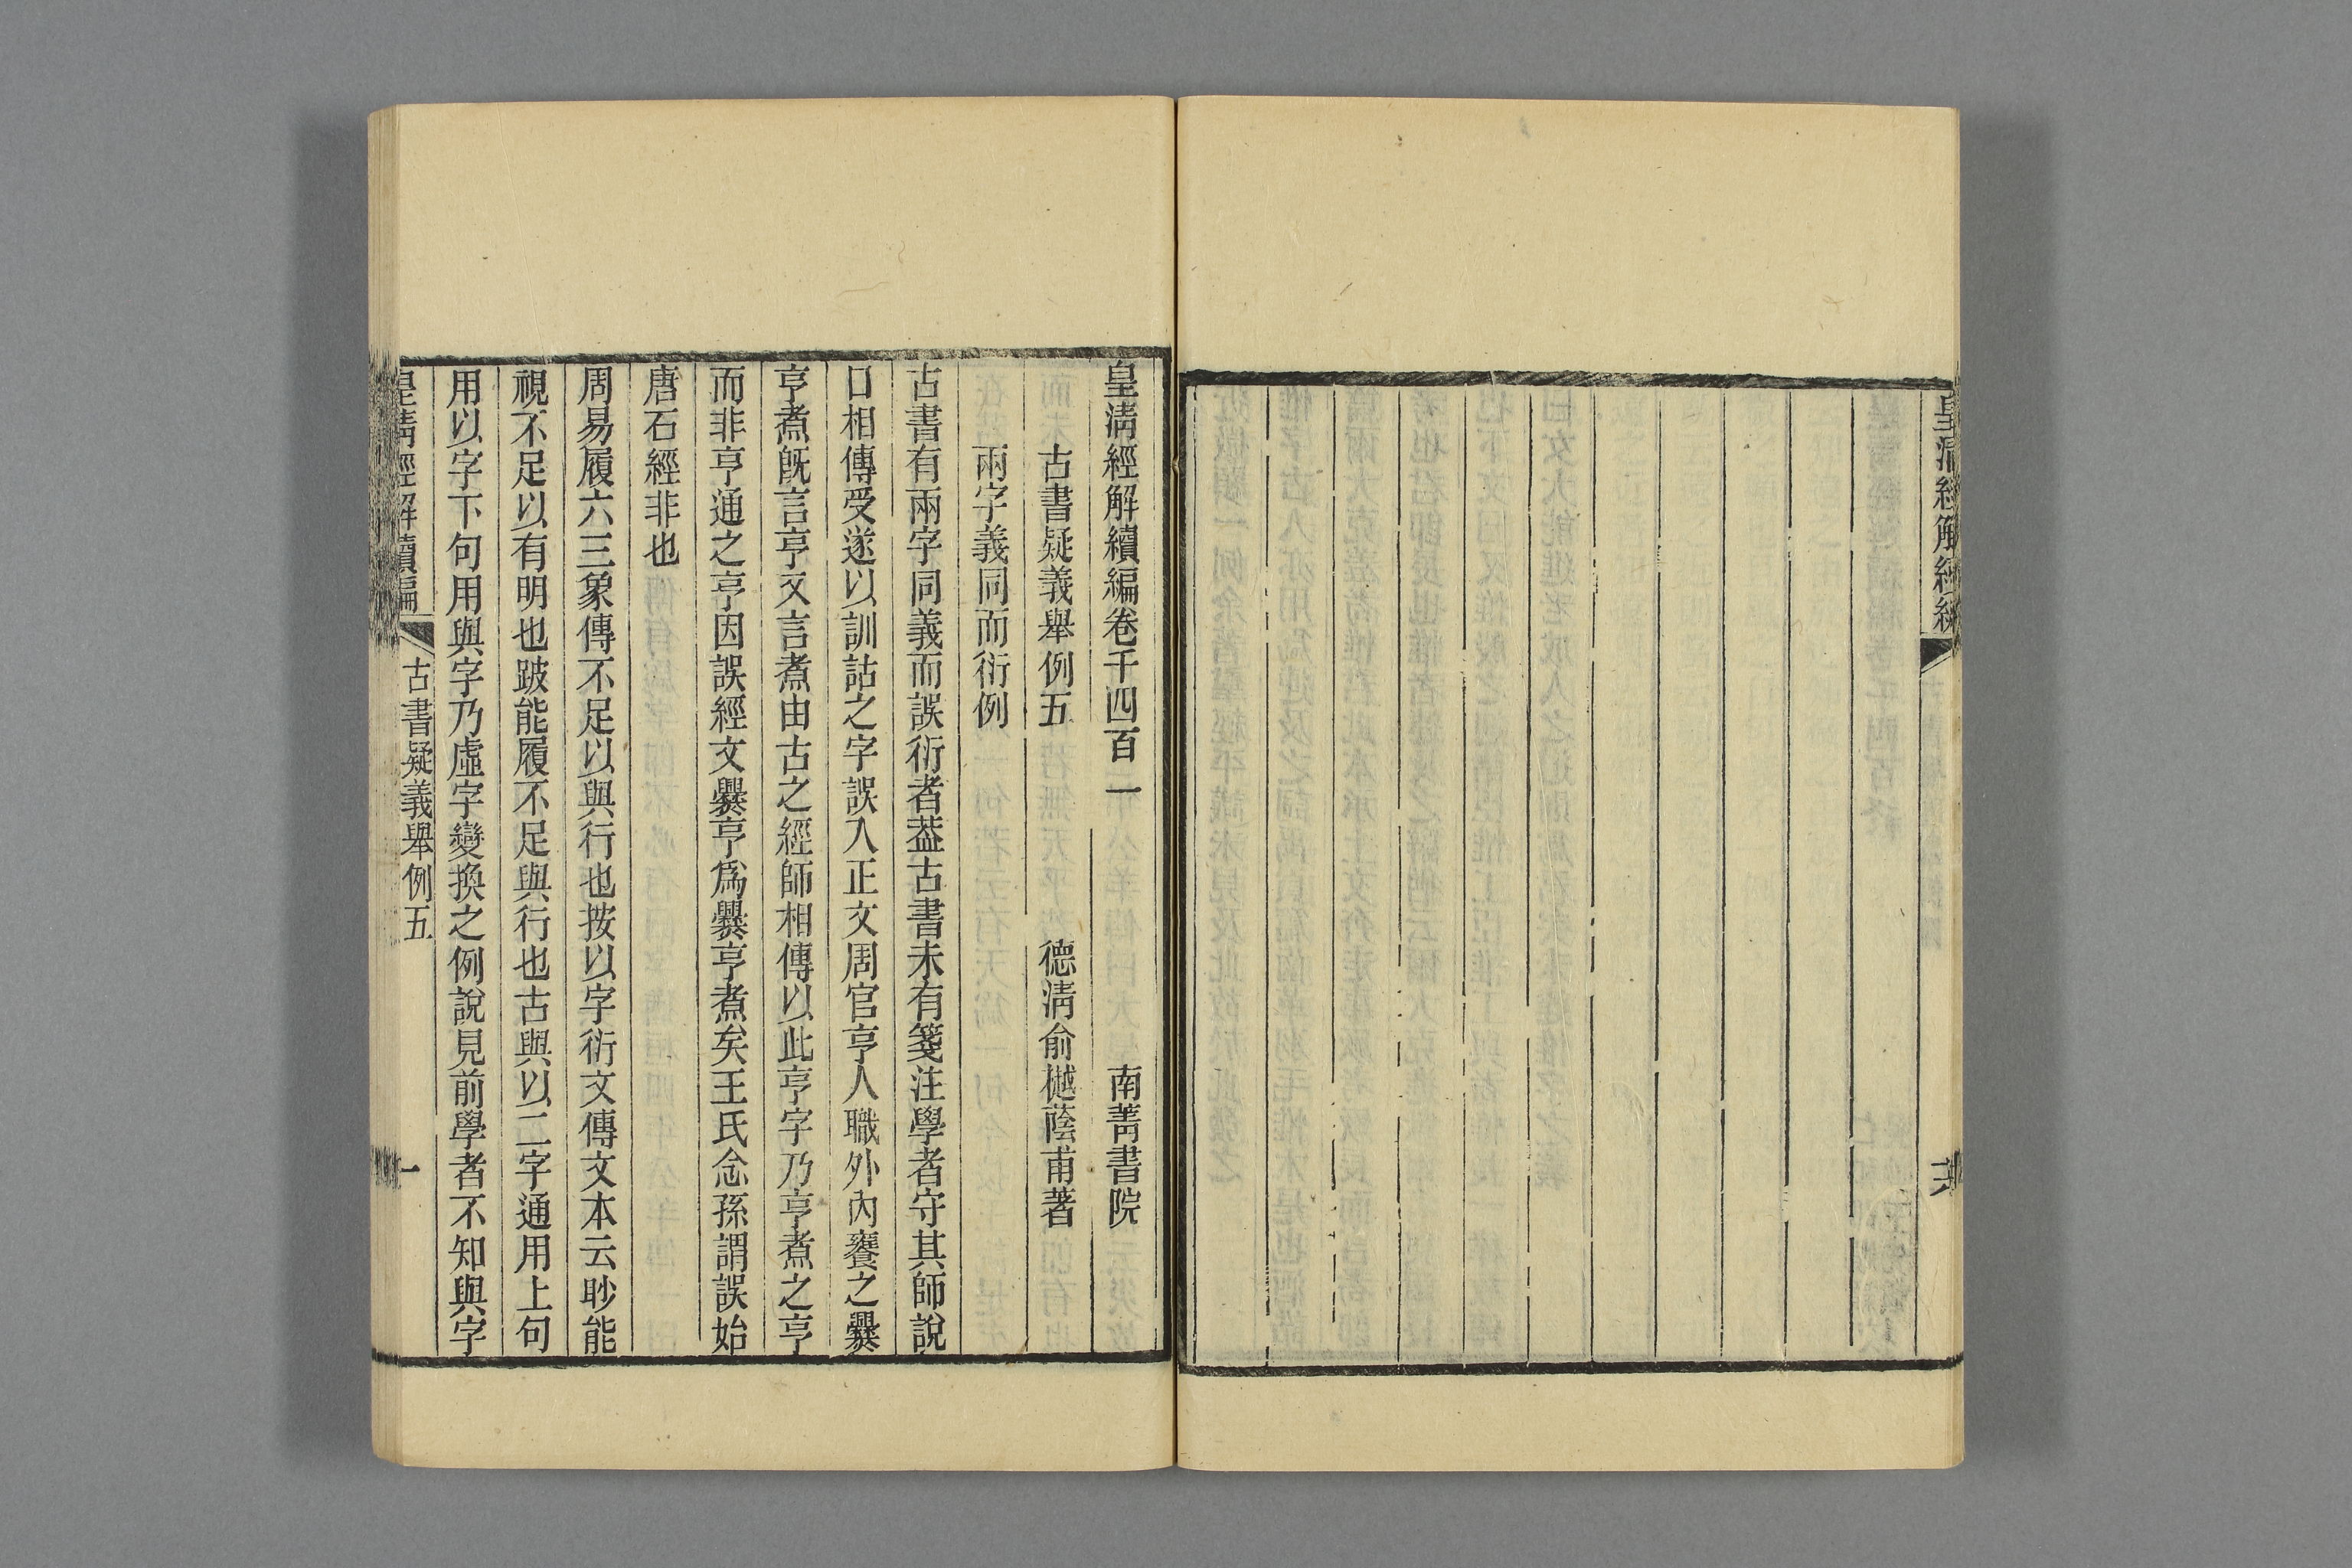 皇清經解續編卷千四百一　南菁書院
古書疑義舉例五　德清俞樾蔭甫著
兩字義同而衍例
古書有兩字同義而誤衍者葢古書未有箋注學者守其師說
口相傳受遂以訓詁之字誤入正文周官亨人職外內饔之爨
亨煮旣言亨又言煮由古之經師相傳以此亨字乃亨煮之亨
而非亨通之亨因誤經文爨亨爲爨亨煮矣王氏念孫謂誤始
唐石經非也
周易履六三象傳不足以與行也按以字衍文傳文本云眇能
視不足以有明也跛能履不足與行也古與以二字通用上句
用以字下句用與字乃虛字變換之例說見前學者不知與字
皇清經解續編　古書疑義舉例五　一